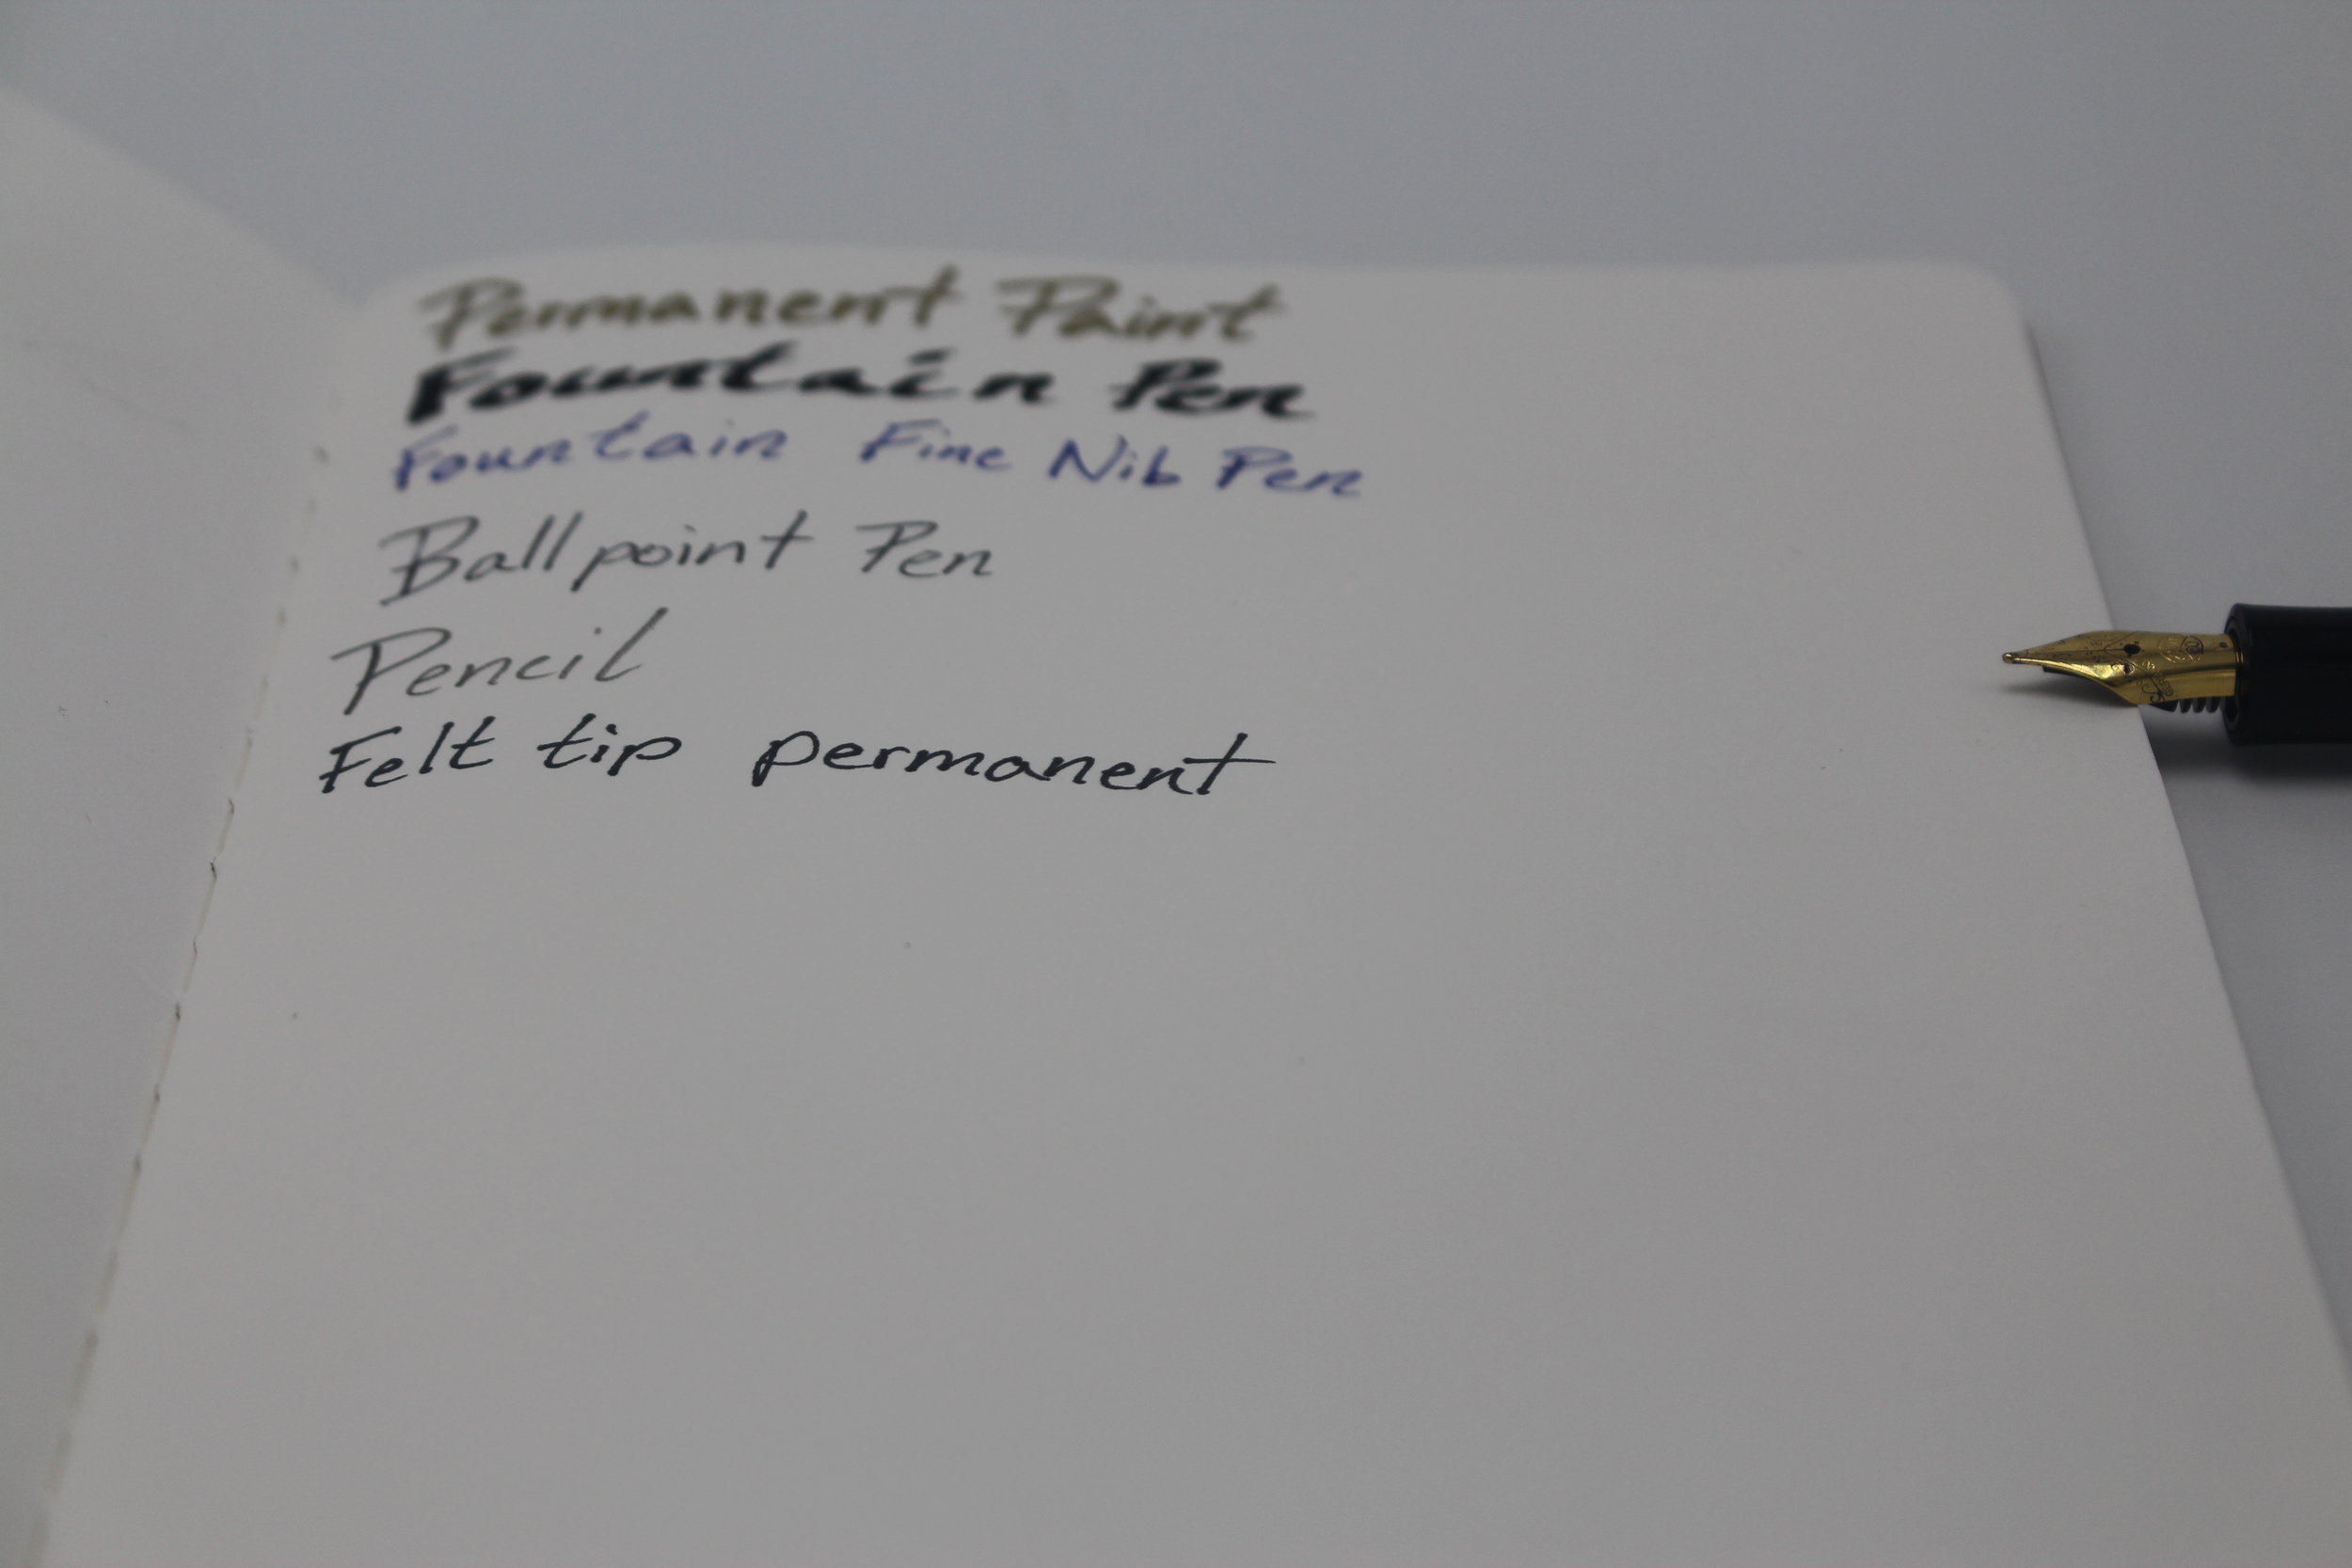 Permanent Paint
Fountain Pen
Fountain Fine Nib Pen
Ballpoint Pen
Pencil
Felt tip permanent